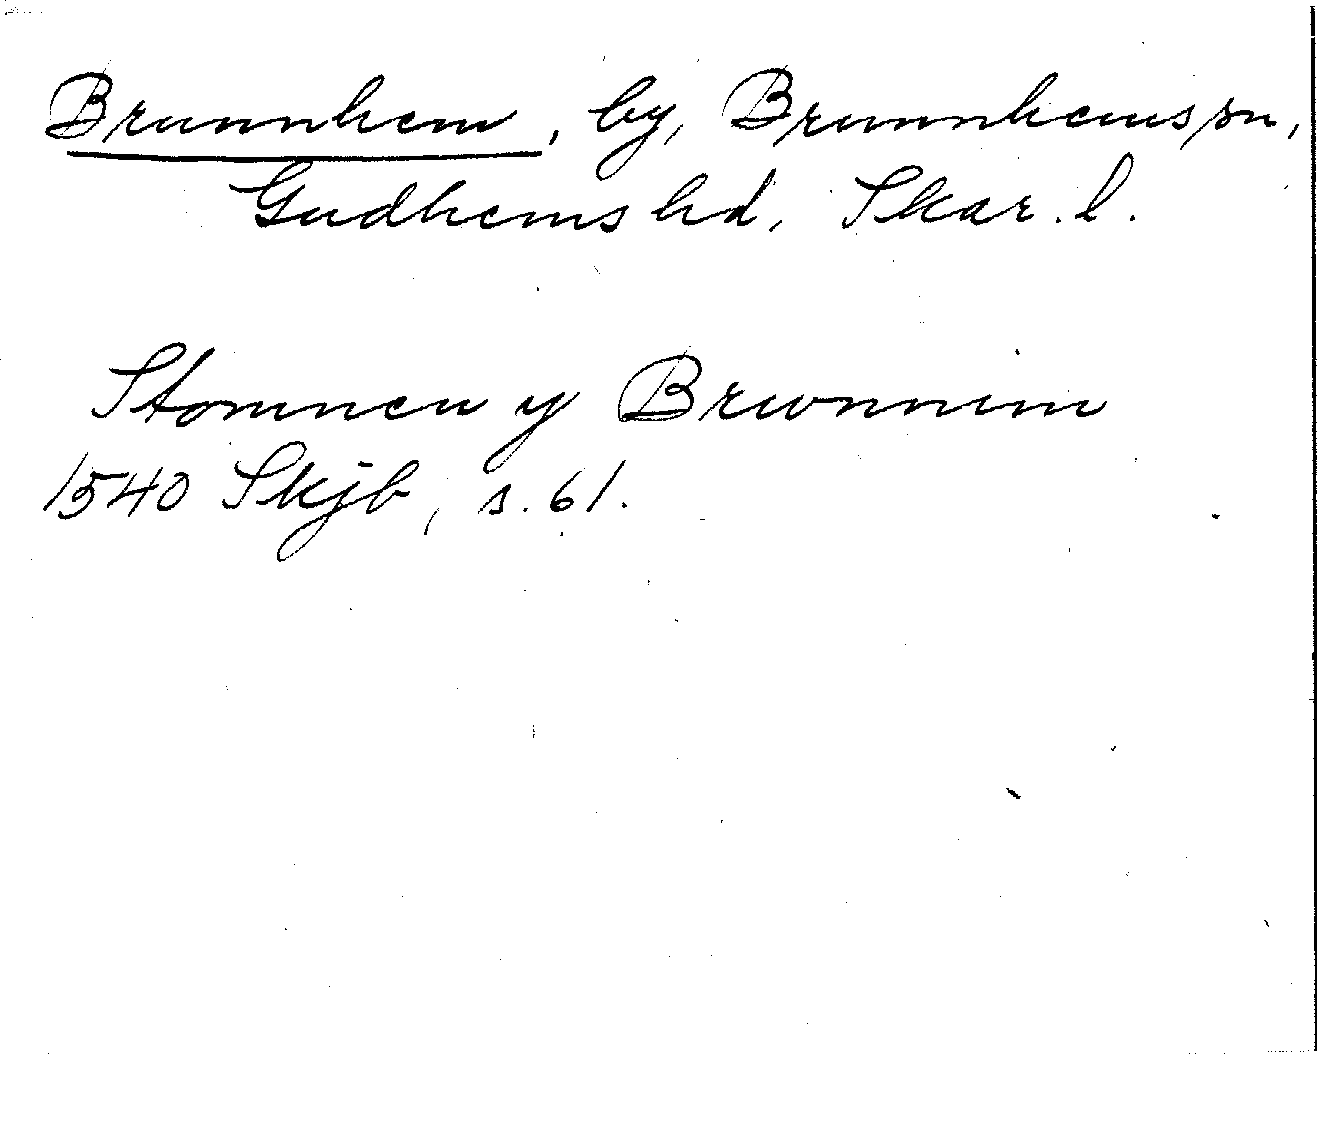 Brunnhem, by, Brunnhems sn,
Gudhems hd, Skar. l.
Stomnen y Brwnnim
1540 Skjb, s. 61.